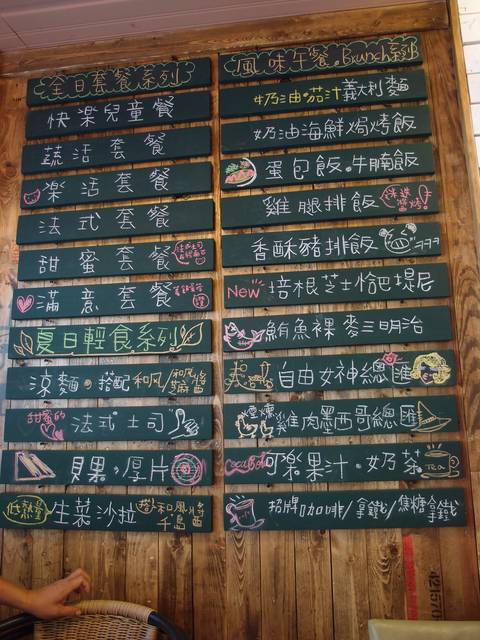 全日套餐系列
快樂兒童餐
蔬活套餐
樂活套餐
法式套餐
甜蜜套餐
滿意套餐
夏日輕食系列
涼麵・搭配和風/和風麻醬
甜蜜的 法式土司
貝果,厚片
低熱量 生菜沙拉 搭和風 千島醬
風味午餐.Brunch系列
奶油・茄汁義大利麵
奶油海鮮焗烤飯
蛋包飯・牛腩飯
雞腿排飯
香酥豬排飯
New 培根芝士恰巴堤尼
鮪魚裸麥三明治
自由女神總匯
煙燻雞肉墨西哥總匯
CocaCola 可樂果汁・奶茶 TEA
招牌咖啡/拿鐵/焦糖拿鐵